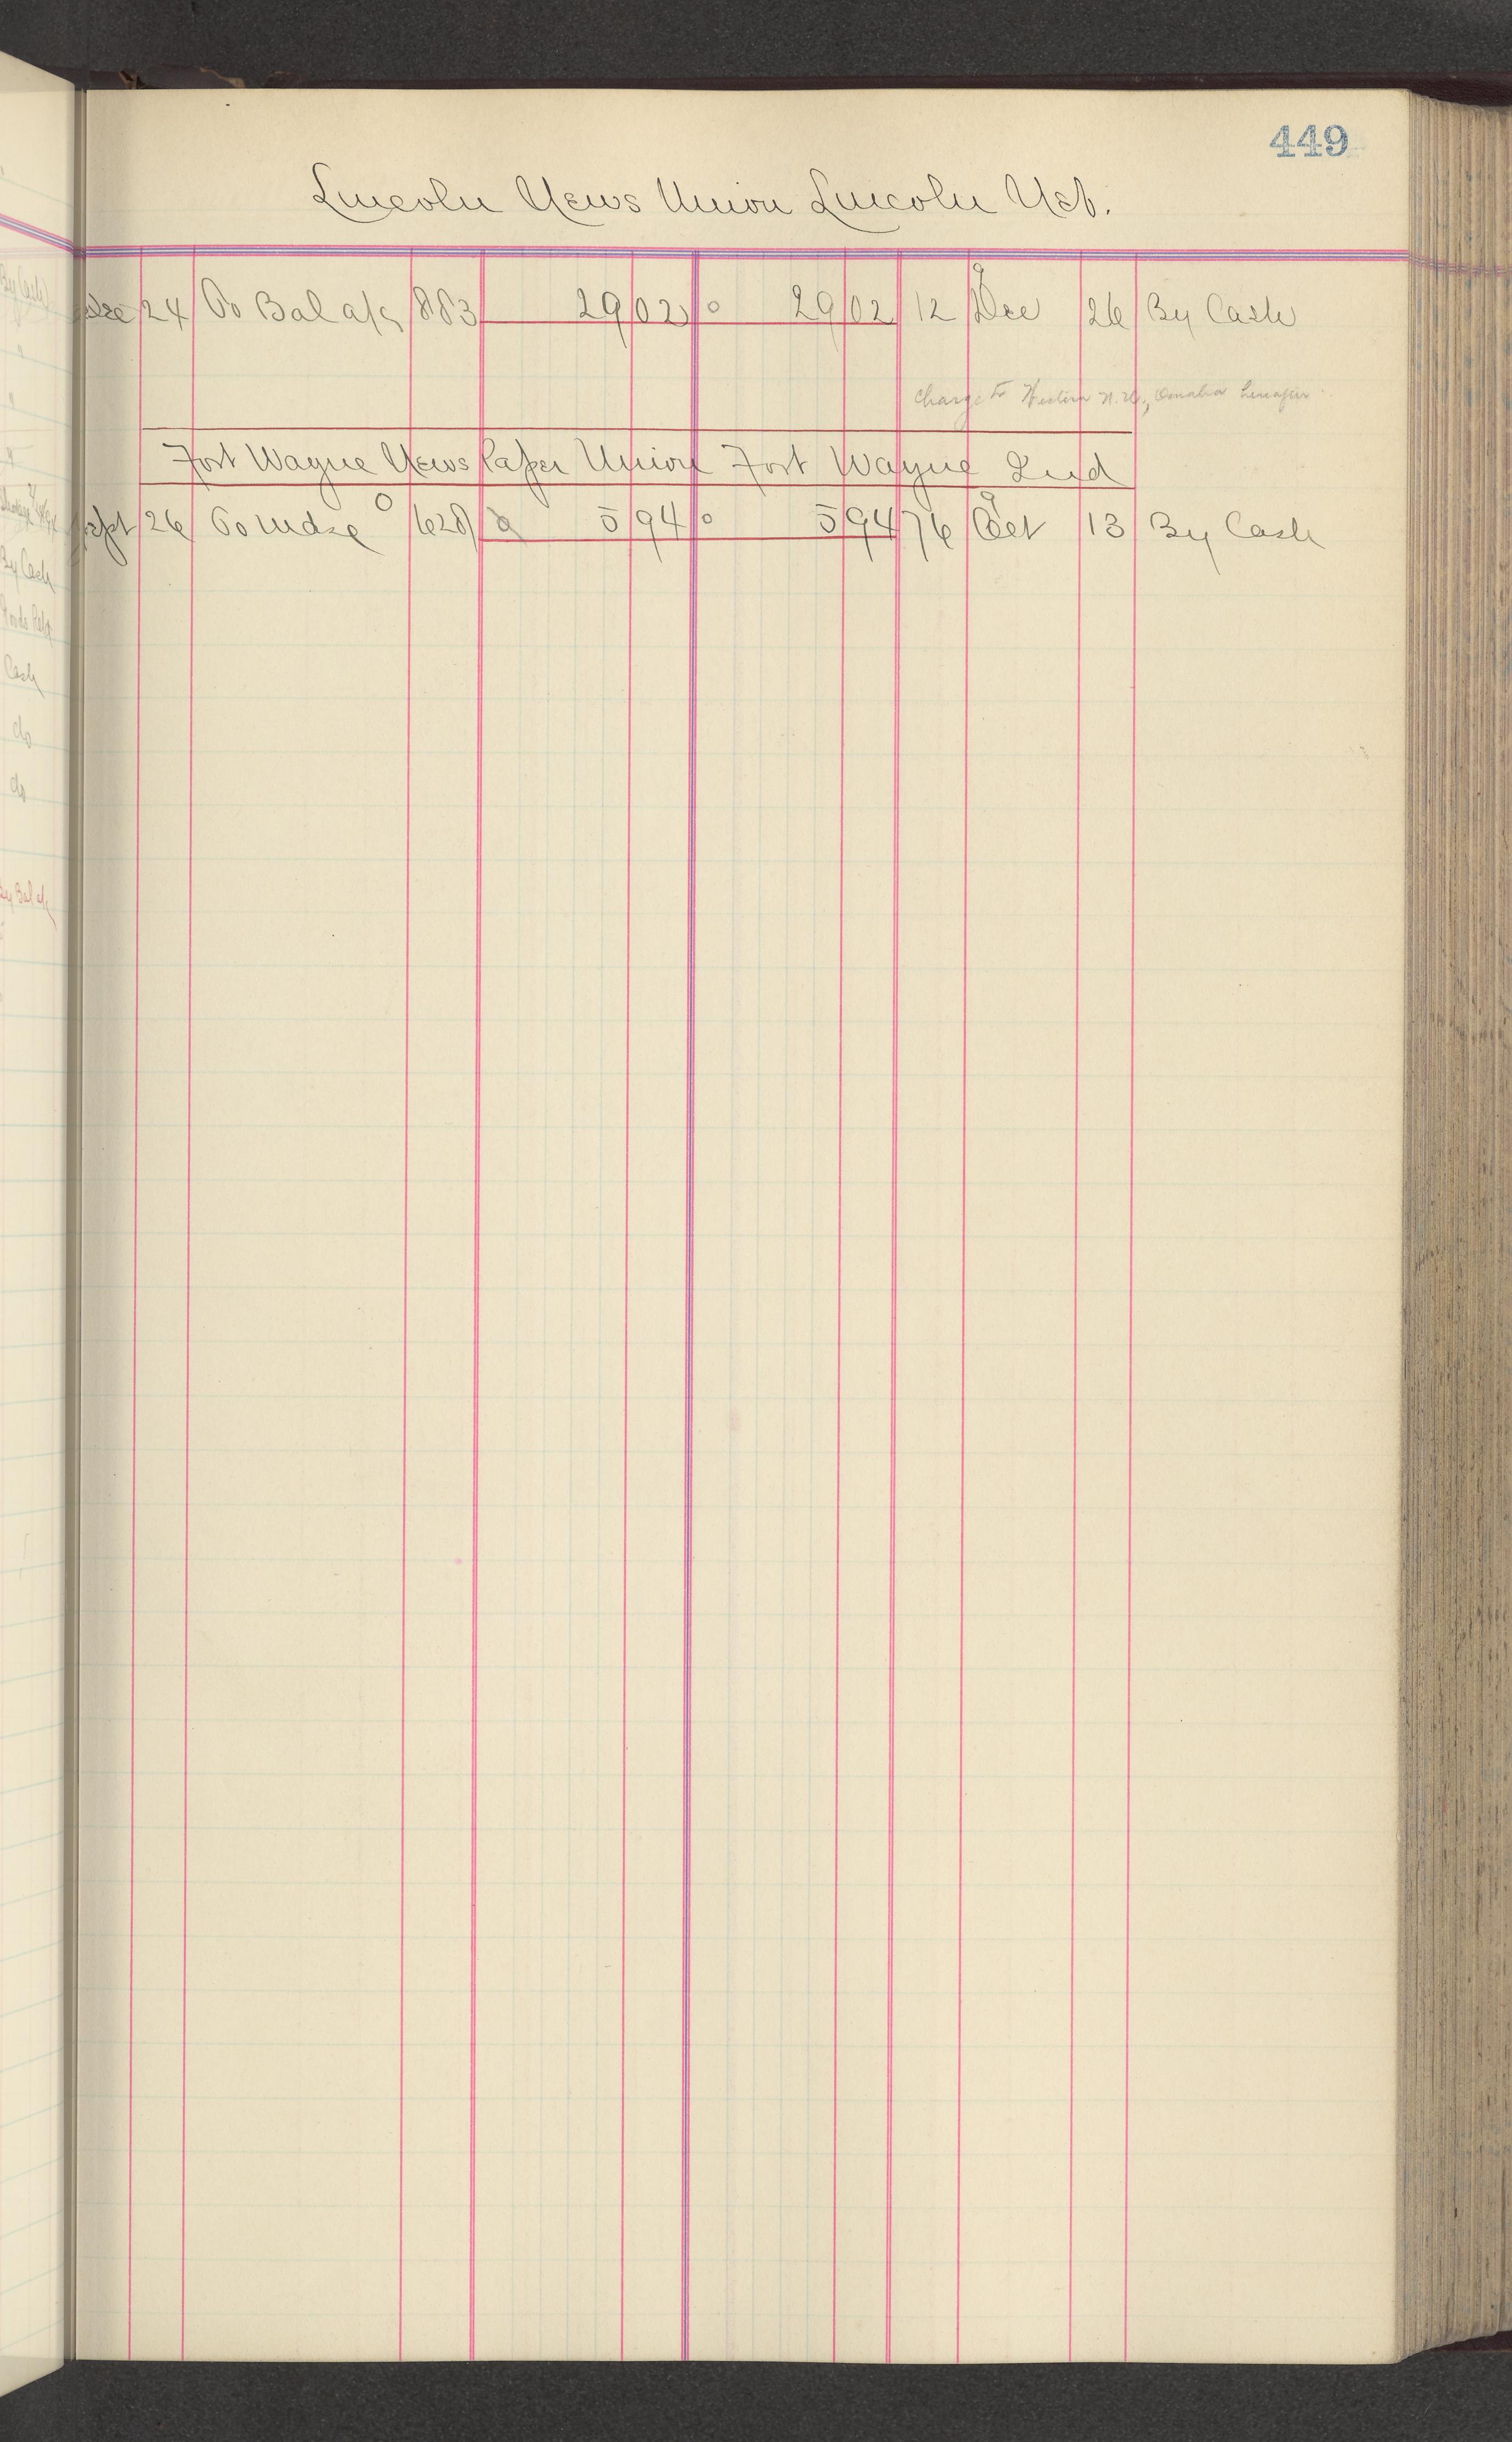 449
Lincoln News Union Lincoln Neb.
Dec 24 To Bal a/c 883 29 02 29 02 12 Dec 26 By Cash
Charge to Western N.U., Omaha
Fort Wayne News Paper Union Fort Wayne Ind
Sept 26 To Mdse 628 5 94 5 94 76 Oct 13 By Cash
By Cash
By Cash
Cash
do
do
By Bal a/c